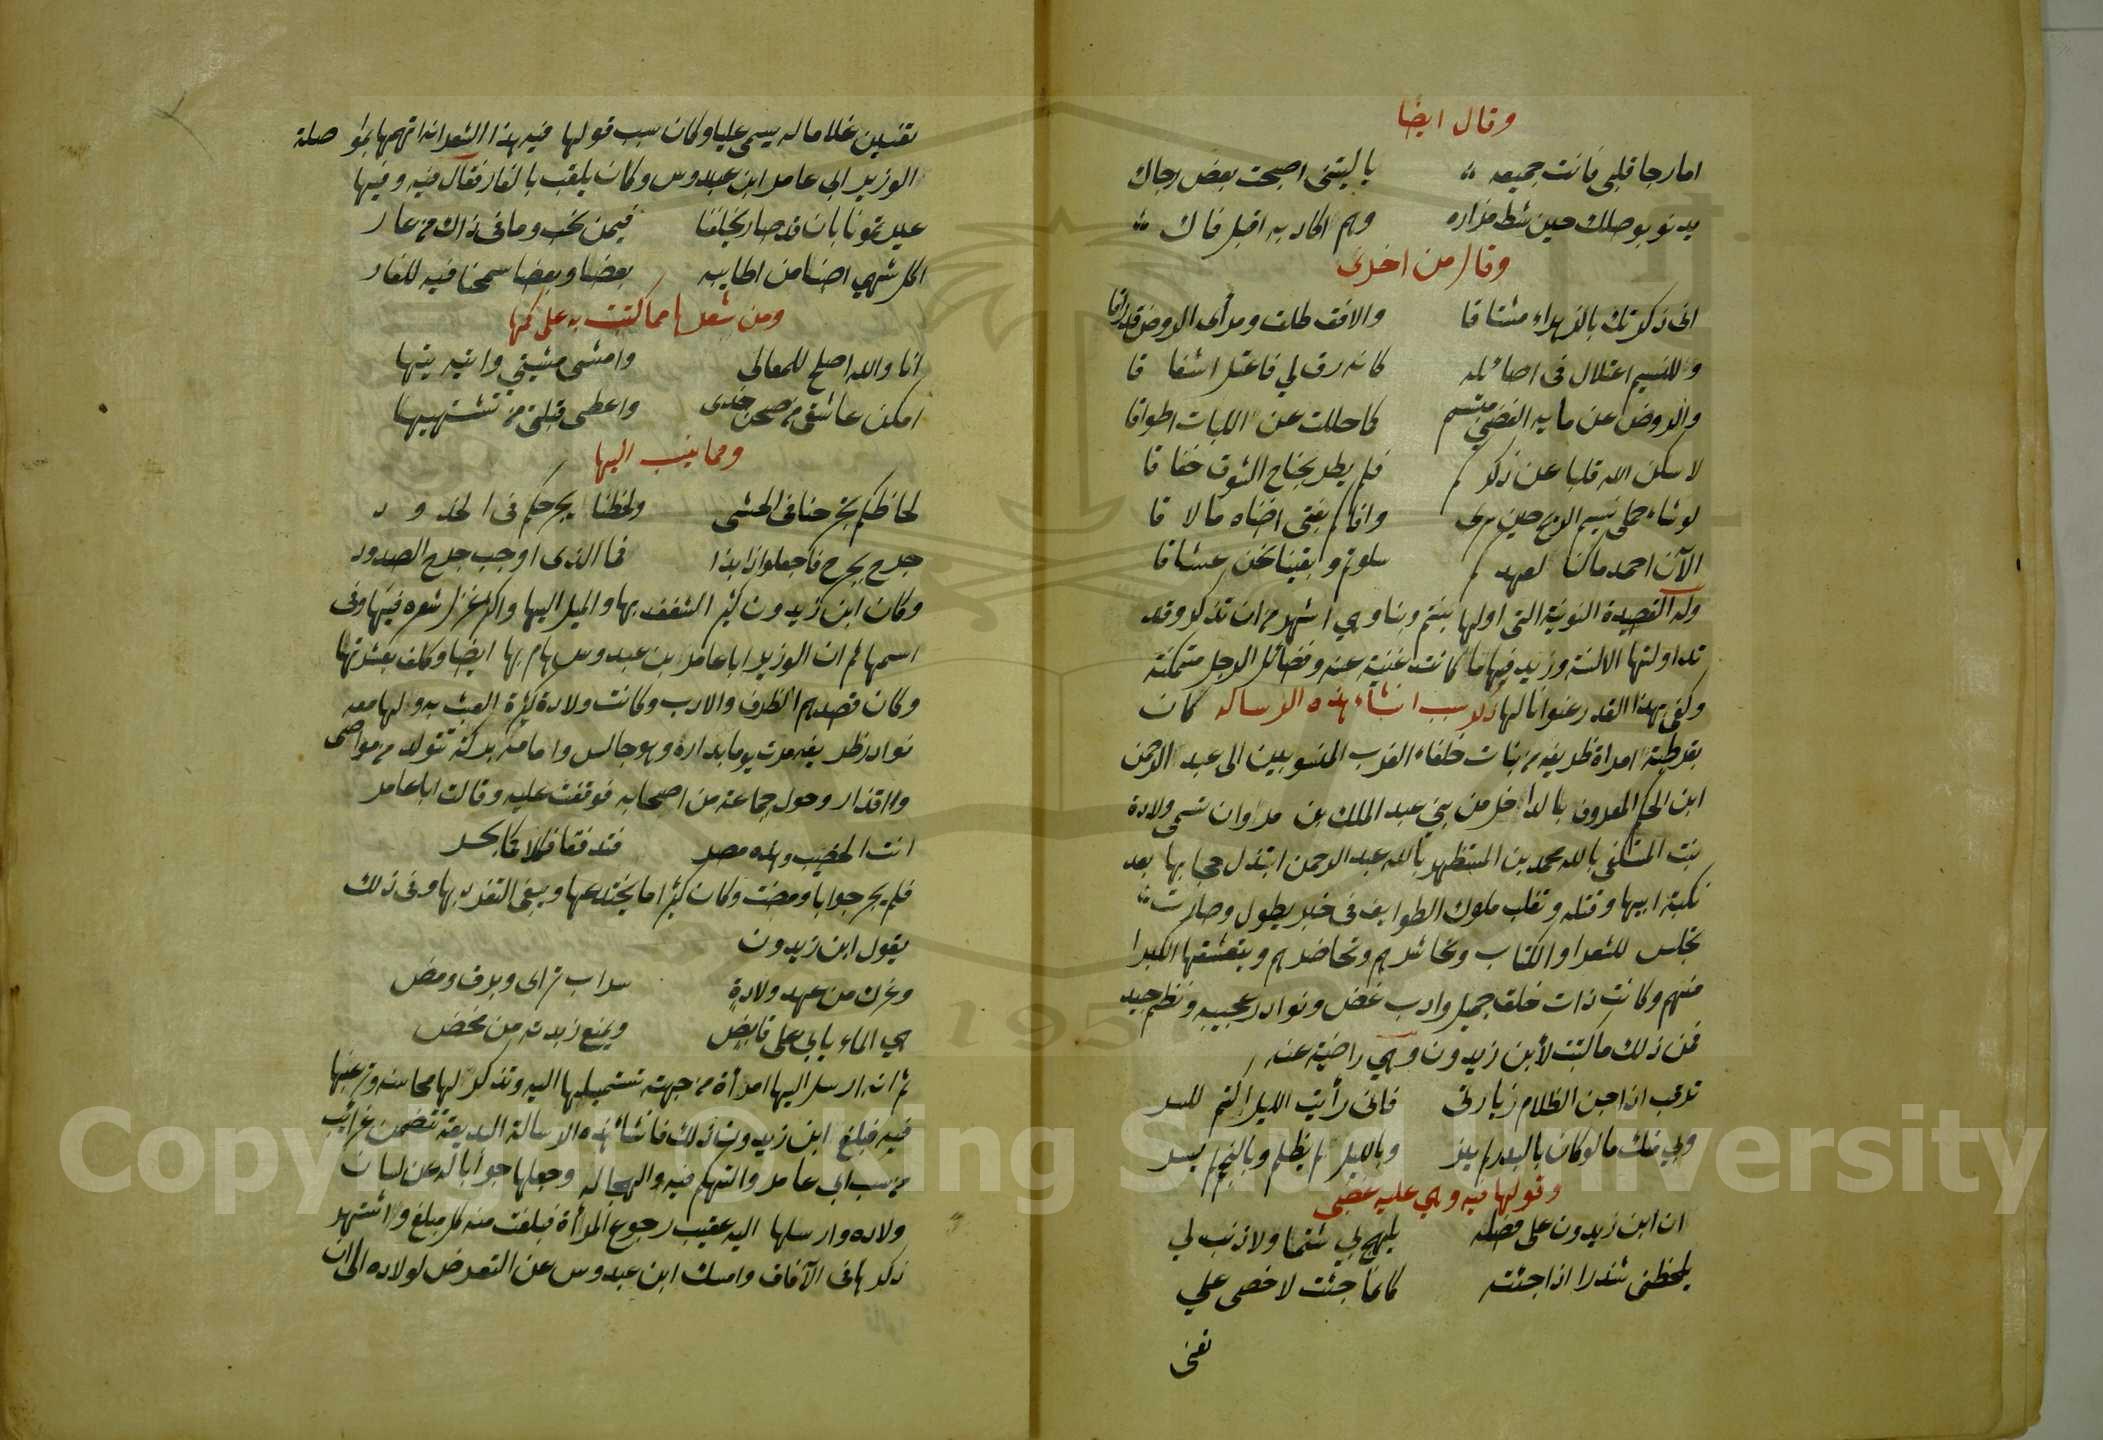 وقال ايضا
اما رجا قلبي فانت جميعه يا ليتني اصبحت بعض رجاك
يدنو بوصلك حين شط مزاره وهم اكاد به اقبل فاك
وقال من اخرى
اني ذكرتك بالزهراء مشتاقا والافق طلق ومرأى الروض قد راقا
وللنسيم اعتلال في اصائله كانه رق لي فاعتل اشفاقا
والروض عن مايه الفضي مبتسم كما حللت عن اللبات اطواقا
لا سكن الله قلبا عن ذكركم فلم يطر بجناح الشوق خفاقا
لو شاء حملي نسيم الريح حين سرى وافاكم بفتى اضناه ما لاقا
الآن احمد ما كنا لعهدكم سلوتم وبقينا نحن عشاقا
وله القصيدة النونية التي اولها بنتم وبنا وهي اشهر من ان تذكر وقد
تداولتها الالسنة وزيد فيها ما كانت غنية عنه وفضائل الرجل متمكنة
وكفى بهذا القدر عنوانا لها ذكر سبب انشاء هذه الرساله كان
بقرطبة امراة ظريفه من بنات خلفاء الغرب المنسوبين الى عبد الرحمن
ابن الحكم المعروف بالداخل من بني عبد الملك بن مروان تسمى ولادة
بنت المستكفي بالله محمد بن المستظهر بالله عبد الرحمن ابتذل حجابها بعد
نكبة ابيها وقتله وتغلب ملوك الطوايف في خبر يطول وصارت
تجلس للشعرا والكتاب وتعاشرهم وتحاضرهم ويتعشقها الكبرا
منهم وكانت ذات خلق جميل وادب غض ونوادر عجيبه ونظم جيد
فمن ذلك ما كتبت لأبن زيدون وهي راضية عنه
ترقب اذا جن الظلام زيارتي فاني رأيت الليل اكتم للسر
وبي منك ما لو كان بالبدر لم ينر وبالليل لم يظلم وبالنجم لم يسر
وقولها فيه وهي عليه غضبى
ان ابن زيدون على فضله يلهج بي شتما ولا ذنب لي
يلحظني شذرا اذا جئته كانما جئت لاخصي علي
تعني
تقنين غلاما له يسمى عليا وكان سبب قولها فيه هذا الشعر انه اتهمها بمواصلة
الوزير ابي عامر ابن عبدوس وكان يلقب بالفار فقال فيه وفيها
عيرتمونا بان قد صار يخلفنا فيمن نحب وما في ذاك من عار
اكل شهي اصبنا من اطايبه بعضا وبعضا سمحنا فيه للفار
ومن شعرها مما كتبت به على كمها
انا والله اصلح للمعالي وامشي مشيتي واتيه تيها
امكن عاشقي من صحن خدي واعطي قبلتي من تشتهيها
ومما ينسب اليها
لحاظكم تجرحنا في الحشى ولحظنا يجرحكم في الخدود
جرح بجرح فاجعلوا ذا بذا فما الذي اوجب جرح الصدود
وكان ابن زيدون كثير الشغف بها والميل اليها واكثر غزل شعره فيها وفي
اسمها ثم ان الوزير ابا عامر ابن عبدوس هام بها ايضا وكلف بعشرتها
وكان قصدهم الظرف والادب وكانت ولادة كثيرة العبث به ولها معه
نوادر ظريفه مرت يوما بداره وهو جالس وامامه بركة تتولد من مواضي
واقذار وحوله جماعة من اصحابه فوقفت عليه وقالت ابا عامر
انت الخصيب وهذه مصر فتدفقا فكلاكما بحر
فلم يحر جوابا ومضت وكان كثيرا ما يخدعها ويبغي التفرد بها وفي ذلك
يقول ابن زيدون
وغرك من عهد ولادة سراب تراى وبرق ومض
هي الماء يابى على قابض ويمنع زبدته من مخض
ثم انه ارسل اليها امرأة من جهته تستميلها اليه وتذكر لها محاسنه وترغبها
فيه فبلغ ابن زيدون ذلك فانشأ هذه الرسالة البديعة تتضمن غرائب
من سب ابي عامر والتهكم فيه والهجا له وجعلها جوابا له عن لسان
ولاده وارسلها اليه عقيب رجوع المرأة فبلغت منه كل مبلغ واشتهر
ذكرها في الآفاق وامسك ابن عبدوس عن التعرض لولاده الى ان
Copyright © King Saud University
1957